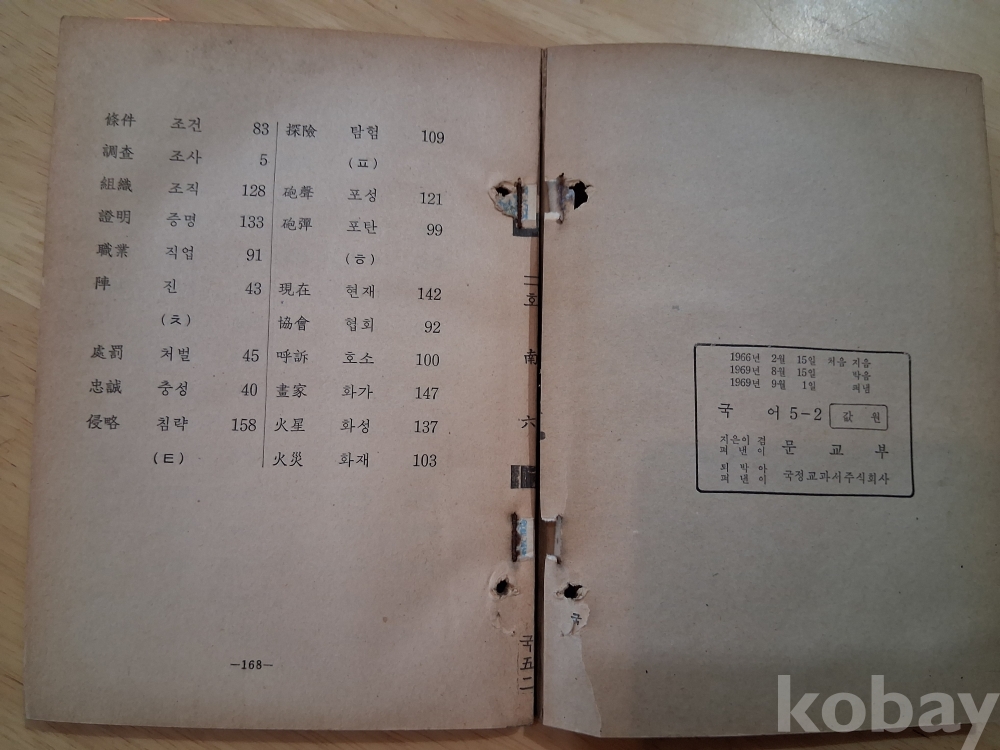 條件 조건 83
調査 조사 5
組織 조직 128
證明 증명 133
職業 직업 91
陣 진 43
(ㅊ)
處罰 처벌 45
忠誠 충성 40
侵略 침략 158
(ㅌ)
探險 탐험 109
(ㅍ)
砲聲 포성 121
砲彈 포탄 99
(ㅎ)
現在 현재 142
協會 협회 92
呼訴 호소 100
畫家 화가 147
火星 화성 137
火災 화재 103
—168—
二호
南
六
국五二
1966년 2월 15일 처음 지음
1969년 8월 15일 박음
1969년 9월 1일 펴냄
국 어 5-2 값 원
지은이 겸
펴낸이 문교부
되박아
펴낸이 국정교과서주식회사
kobay